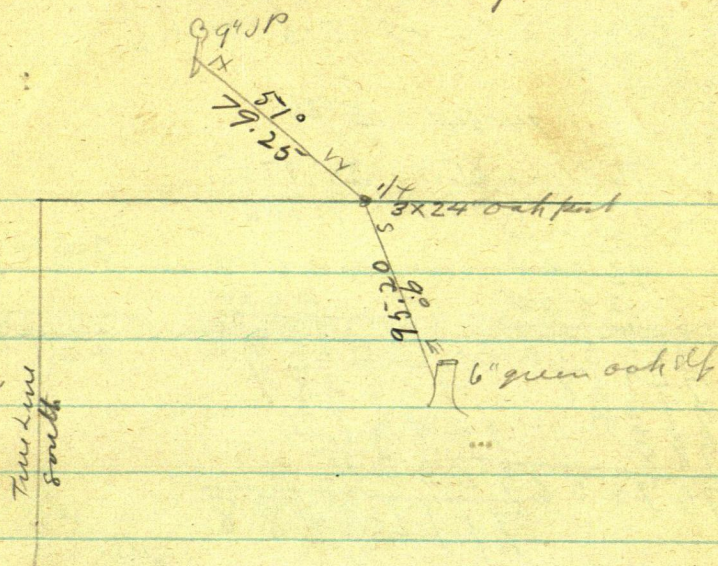 9" JP
N 51° W
79.25
1/4
3x24 oak post
S 9° E
95.20
6" green oak stp
True Line
South